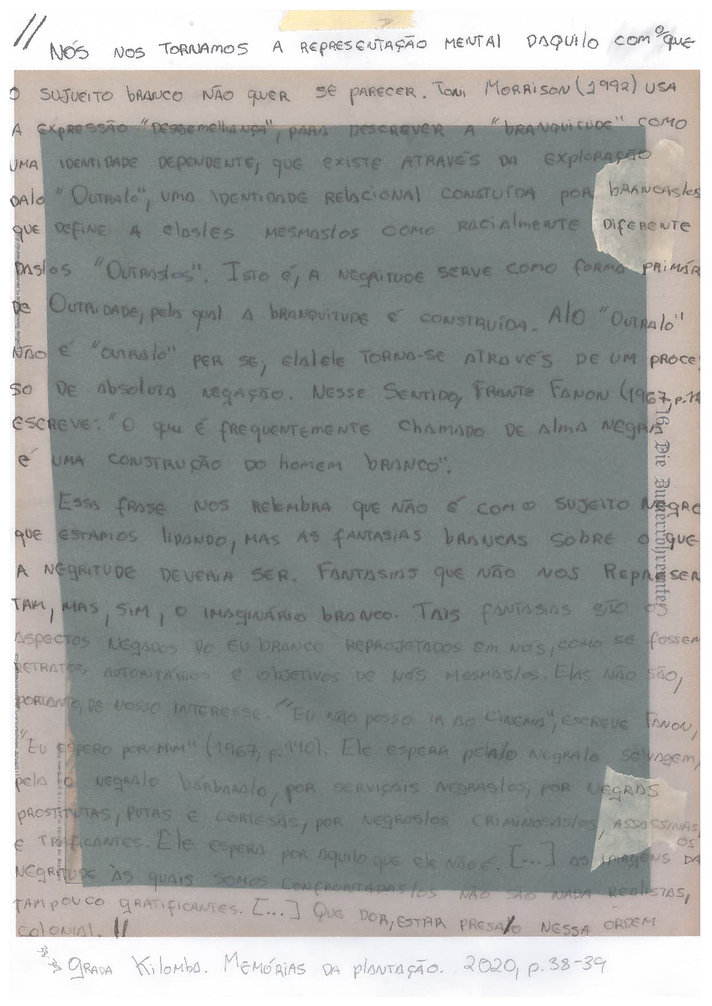 // NÓS NOS TORNAMOS A REPRESENTAÇÃO MENTAL DAQUILO COM O QUE
O SUJUEITO BRANCO NÃO QUER SE PARECER. TONI MORRISON (1992) USA
A EXPRESSÃO "DESSEMELHANÇA", PARA DESCREVER A "BRANQUITUDE" COMO
UMA IDENTIDADE DEPENDENTE, QUE EXISTE ATRAVÉS DA EXPLORAÇÃO
DA/O "OUTRA/O", UMA IDENTIDADE RELACIONAL CONSTUÍDA POR BRANCAS/OS
QUE DEFINE A ELAS/ES MESMAS/OS COMO RACIALMENTE DIFERENTE
DAS/OS "OUTRAS/OS". ISTO É, A NEGRITUDE SERVE COMO FORMA PRIMÁR
DE OUTRIDADE, PELA QUAL A BRANQUITUDE É CONSTRUÍDA. A/O "OUTRA/O"
NÃO É "OUTRA/O" PER SE; ELA/ELE TORNA-SE ATRAVÉS DE UM PROCE
SO DE ABSOLUTA NEGAÇÃO. NESSE SENTIDO, FRANTZ FANON (1967, p.11
ESCREVE: "O QUE É FREQUENTEMENTE CHAMADO DE ALMA NEGRA
É UMA CONSTRUÇÃO DO HOMEM BRANCO".
ESSA FRASE NOS RELEMBRA QUE NÃO É COM O SUJEITO NEGRO
QUE ESTAMOS LIDANDO, MAS AS FANTASIAS BRANCAS SOBRE O QUE
A NEGRITUDE DEVERIA SER. FANTASIAS QUE NÃO NOS REPRESEN
TAM, MAS, SIM, O IMAGINÁRIO BRANCO. TAIS FANTASIAS SÃO OS
ASPECTOS NEGADOS DO EU BRANCO REPROJETADOS EM NÓS, COMO SE FOSSEM
RETRATOS AUTORITÁRIOS E OBJETIVOS DE NÓS MESMAS/OS. ELAS NÃO SÃO,
PORTANTO, DE NOSSO INTERESSE. "EU NÃO POSSO IR AO CINEMA", ESCREVE FANON,
"EU ESPERO POR MIM" (1967, p.140). ELE ESPERA PELA/O NEGRA/O SELVAGEM,
PELA/O NEGRA/O BÁRBARA/O, POR SERVIÇAIS NEGRAS/OS, POR NEGRAS
PROSTITUTAS, PUTAS E CORTESÃS, POR NEGRAS/OS CRIMINOSAS/OS, ASSASSINAS/OS
E TRAFICANTES. ELE ESPERA POR AQUILO QUE ELE NÃO É. [...] AS IMAGENS DA
NEGRITUDE ÀS QUAIS SOMOS CONFRONTADAS/OS NÃO SÃO NADA REALISTAS,
TAMPOUCO GRATIFICANTES. [...] QUE DOR, ESTAR PRESA/O NESSA ORDEM
COLONIAL. //
GRADA KILOMBA. MEMÓRIAS DA PLANTAÇÃO. 2020, p.38-39